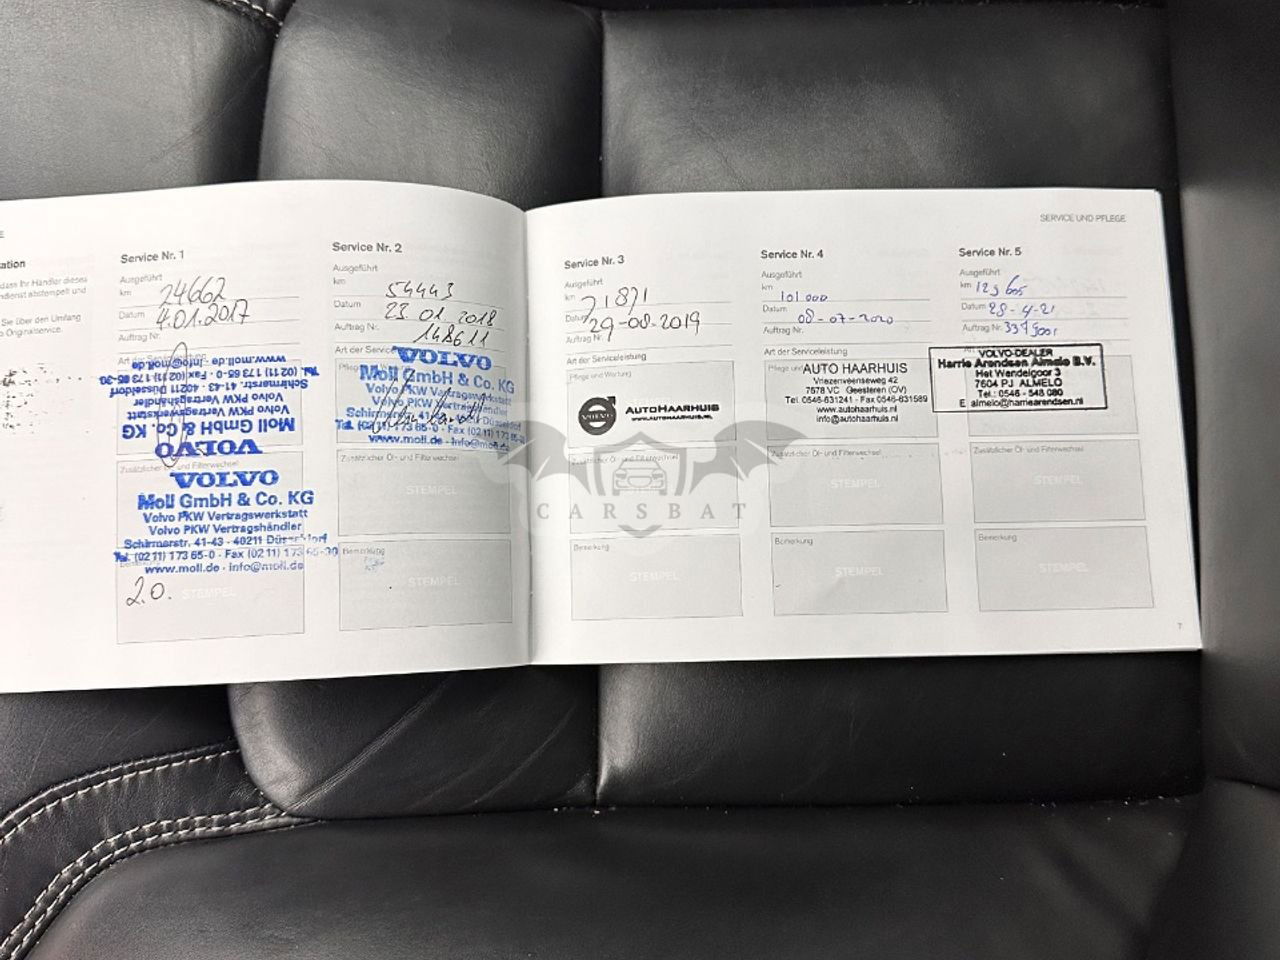 E
ation
dass Ihr Händler dieses
dienst abstempelt und
Sie über den Umfang
o Originalservice.
Service Nr. 1
Ausgeführt
km 24662
Datum 4.01.2017
Auftrag Nr.
Art der Serviceleistung
VOLVO
Moll GmbH & Co. KG
Volvo PKW Vertragswerkstatt
Volvo PKW Vertragshändler
Schirmerstr. 41-43 · 40211 Düsseldorf
Tel. (02 11) 173 65-0 · Fax (02 11) 173 65-30
www.moll.de · info@moll.de
Zusätzlicher Öl- und Filterwechsel
VOLVO
Moll GmbH & Co. KG
Volvo PKW Vertragswerkstatt
Volvo PKW Vertragshändler
Schirmerstr. 41-43 - 40211 Düsseldorf
Tel. (02 11) 173 65-0 · Fax (02 11) 173 65-30
www.moll.de · info@moll.de
2.0.
STEMPEL
Service Nr. 2
Ausgeführt
km 54443
Datum 23.01.2018
Auftrag Nr. 148611
Art der Serviceleistung
VOLVO
Moll GmbH & Co. KG
Volvo PKW Vertragswerkstatt
Volvo PKW Vertragshändler
Schirmerstr. 41-43 Düsseldorf
Tel. (02 11) 173 65-0 · Fax (02 11) 173 65-30
www.moll.de · info@moll.de
Zusätzlicher Öl- und Filterwechsel
STEMPEL
Bemerkung
STEMPEL
SERVICE UND PFLEGE
Service Nr. 3
Ausgeführt
km 71871
Datum 29-08-2019
Auftrag Nr.
Art der Serviceleistung
Pflege und Wartung
VOLVO
AUTOHAARHUIS
WWW.AUTOHAARHUIS.NL
Zusätzlicher Öl- und Filterwechsel
Bemerkung
STEMPEL
Service Nr. 4
Ausgeführt
km 101000
Datum 08-07-2020
Auftrag Nr.
Art der Serviceleistung
Pflege und
AUTO HAARHUIS
Vriezenveenseweg 42
7678 VC Geesteren (OV)
Tel. 0546-631241 - Fax 0546-631589
www.autohaarhuis.nl
info@autohaarhuis.nl
Zusätzlicher Öl- und Filterwechsel
STEMPEL
Bemerkung
STEMPEL
Service Nr. 5
Ausgeführt
km
Datum 28-4-21
Auftrag Nr.
VOLVO-DEALER
Harrie Arendsen Almelo B.V.
Het Wendelgoor 3
7604 PJ ALMELO
Tel.: 0546 - 548 080
E almelo@harriearendsen.nl
Zusätzlicher Öl- und Filterwechsel
STEMPEL
Bemerkung
STEMPEL
7
CARSBAT